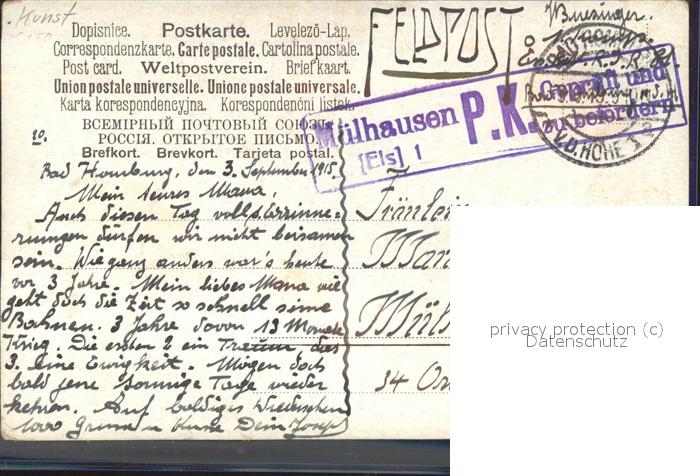 Kunst
Dopisnice. Postkarte. Levelező-Lap.
Correspondenzkarte. Carte postale. Cartolina postale.
Post card. Weltpostverein. Briefkaart.
Union postale universelle. Unione postale universale.
Karta korespondencyjna. Korespondenční lístek.
ВСЕМІРНЫЙ ПОЧТОВЫЙ СОЮЗЪ.
РОССІЯ. ОТКРЫТОЕ ПИСЬМО.
Brefkort. Brevkort. Tarjeta postal.
FELDPOST
Mülhausen P.K. Geprüft und
[Els] 1 zu befördern
BAD HOMBURG
V.D. HÖHE 1
Bad Homburg, den 3. September 1915.
Mein teures Mana,
Auch diesen Tag voll Erinne-
rungen dürfen wir nicht beisamen
sein. Wie ganz anders war's heute
vor 3 Jahre. Mein liebes Mana wie
geht doch die Zeit so schnell seine
Bahnen. 3 Jahre davon 13 Monate
Krieg. Die ersten 2 ein Traum, das
3. eine Ewigkeit. Mögen doch
bald jene sonnige Tage wieder
kehren. Auf baldiges Wiedersehen
1000 Grüsse u Küsse Dein Josef
Fräulein
Man
Mül
34
privacy protection (c)
Datenschutz